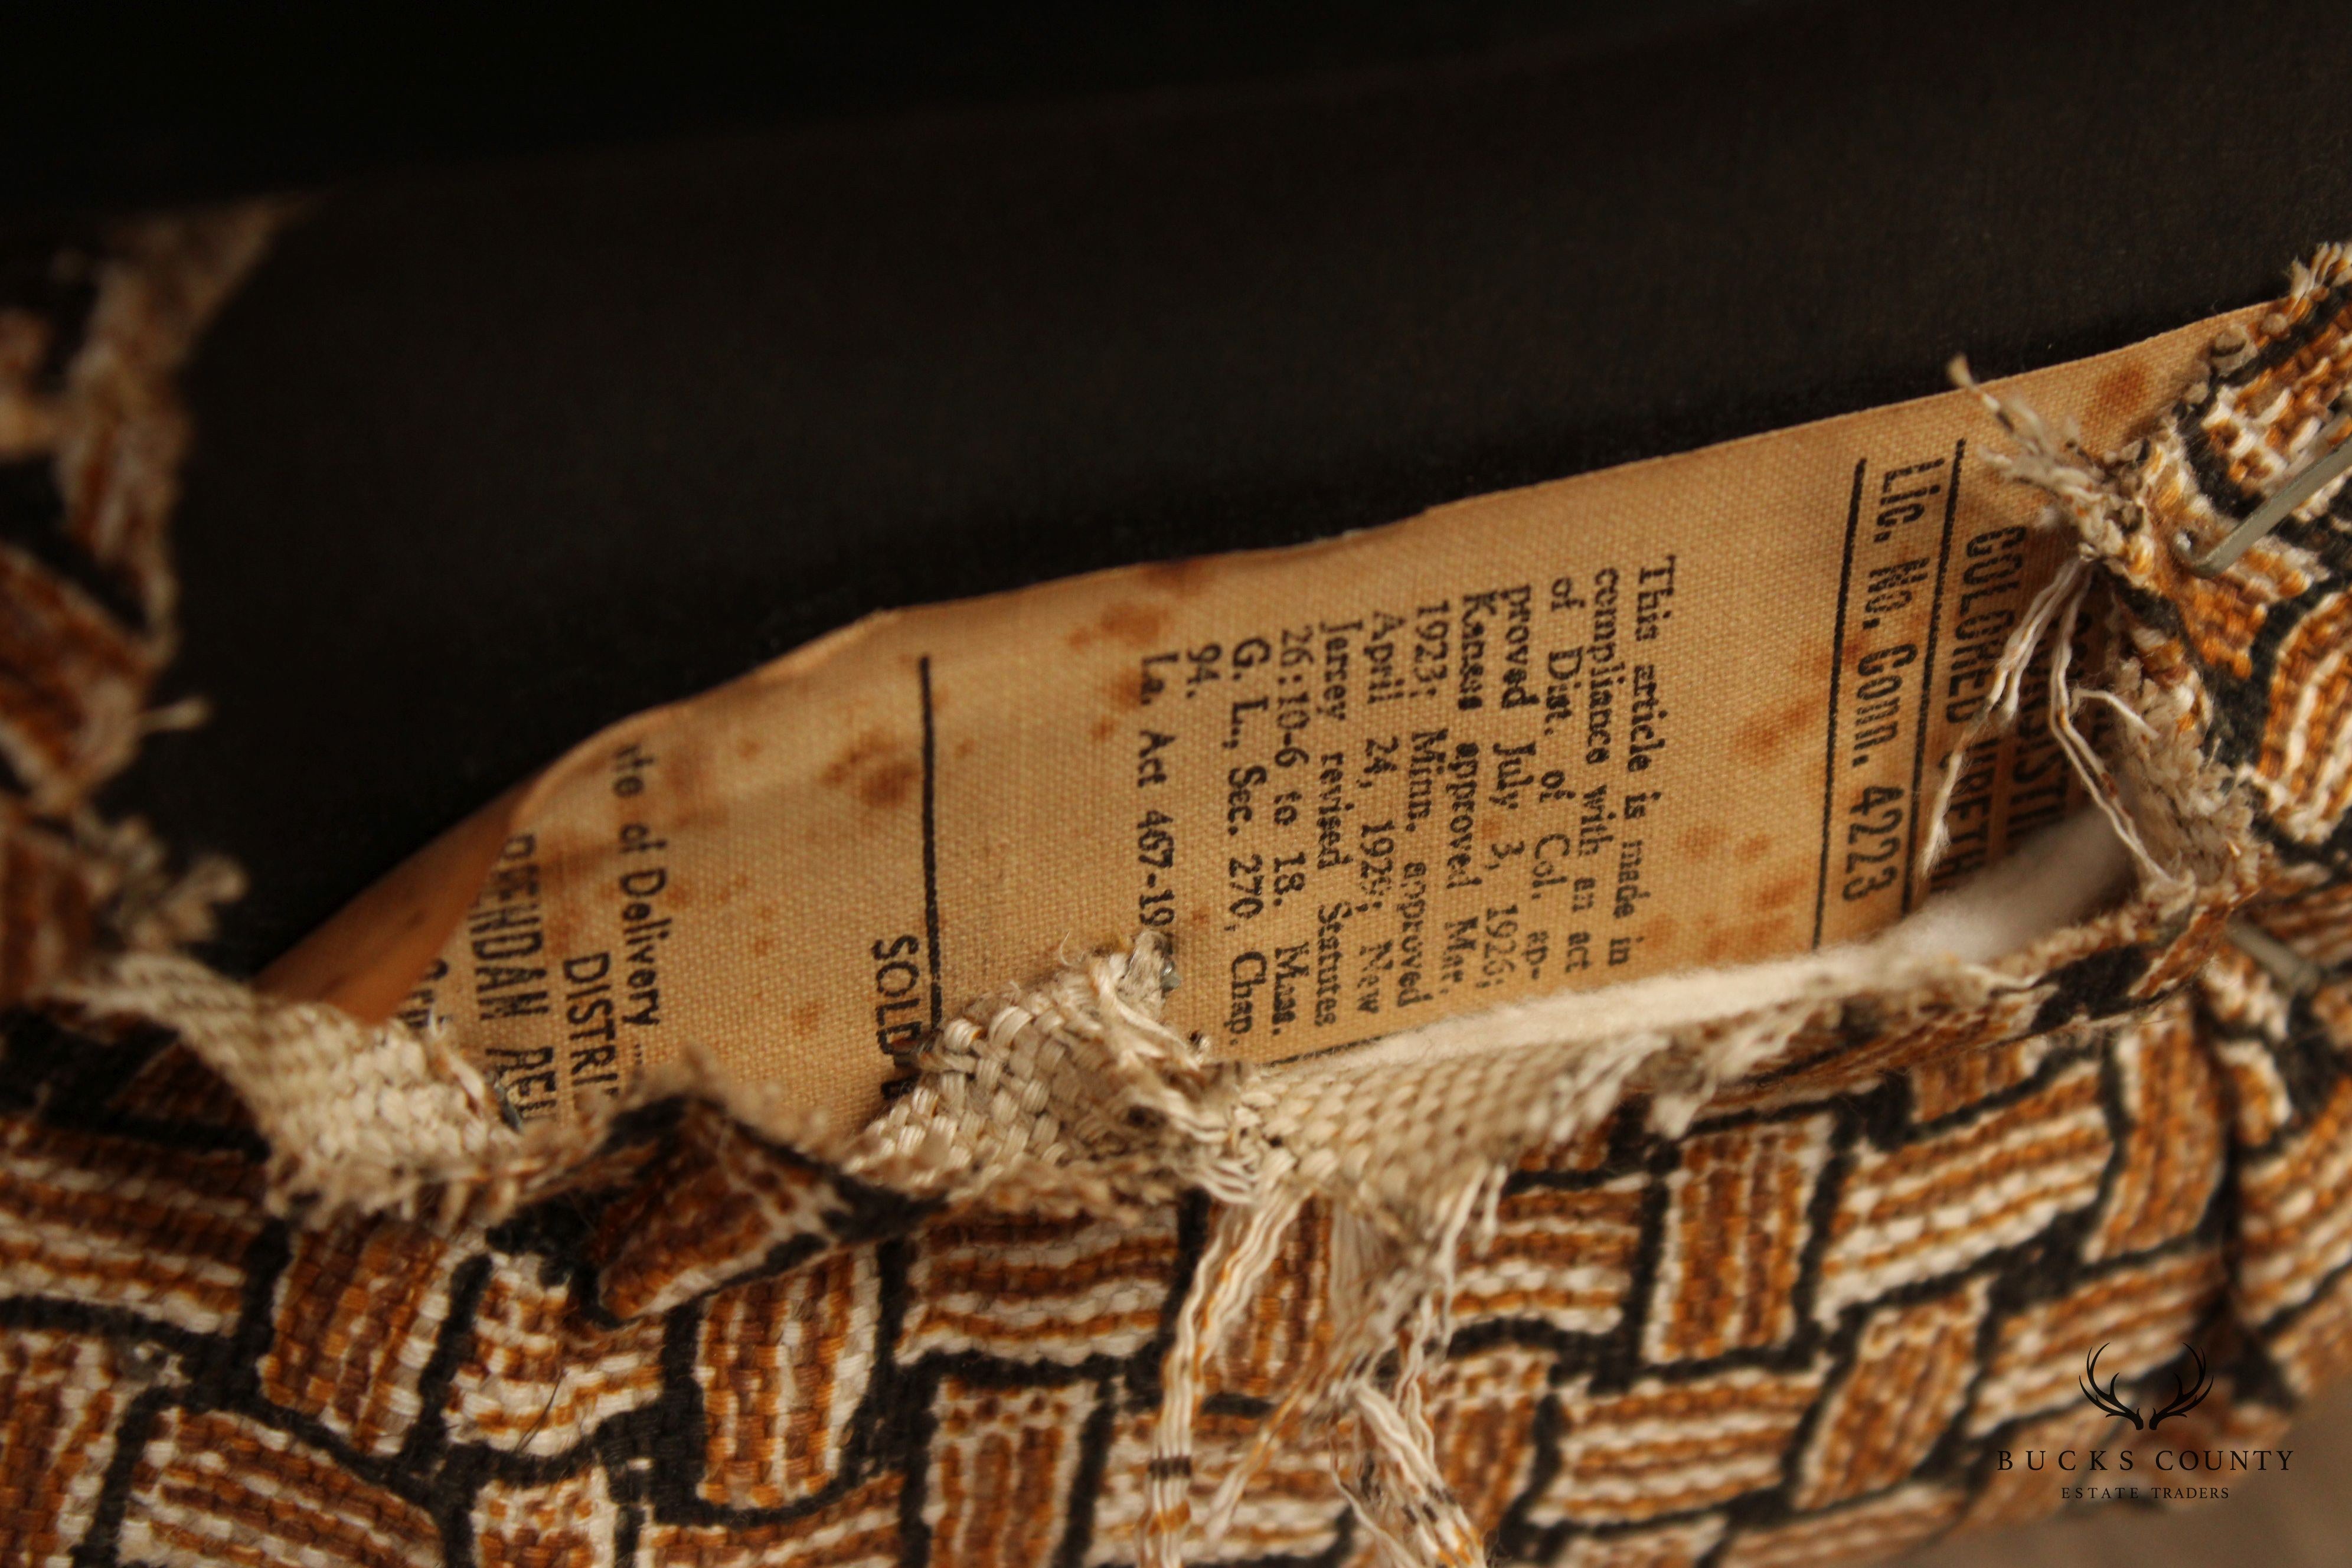 COLORED
Lic. No. Conn. 4223
This article is made in
compliance with an act
of Dist. of Col. ap-
proved July 3, 1926;
Kansas approved Mar.
1923; Minn. approved
April 24, 1929; New
Jersey revised Statutes
26:10-6 to 18. Mass.
G. L., Sec. 270, Chap.
94.
La. Act 467-19
SOLD
of Delivery
BUCKS COUNTY
ESTATE TRADERS